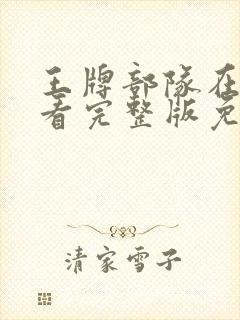 王牌部队在
看完整版免
清家雪子